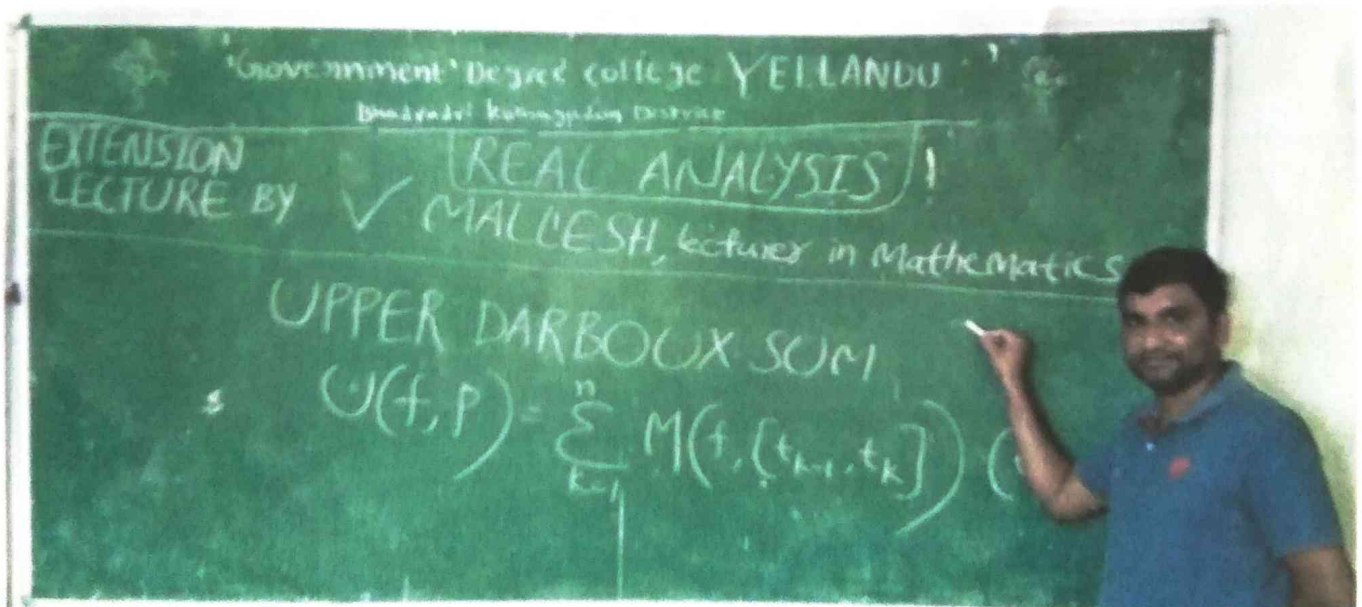 'Government' Degree college YELLANDU '
Bhadradri Kothagudem District
EXTENSION
LECTURE BY
REAL ANALYSIS !
V MALLESH, lecturer in MatheMatics
UPPER DARBOUX SUM
U(f, P) = n∑k=1 M(f, [tk-1, tk]) (